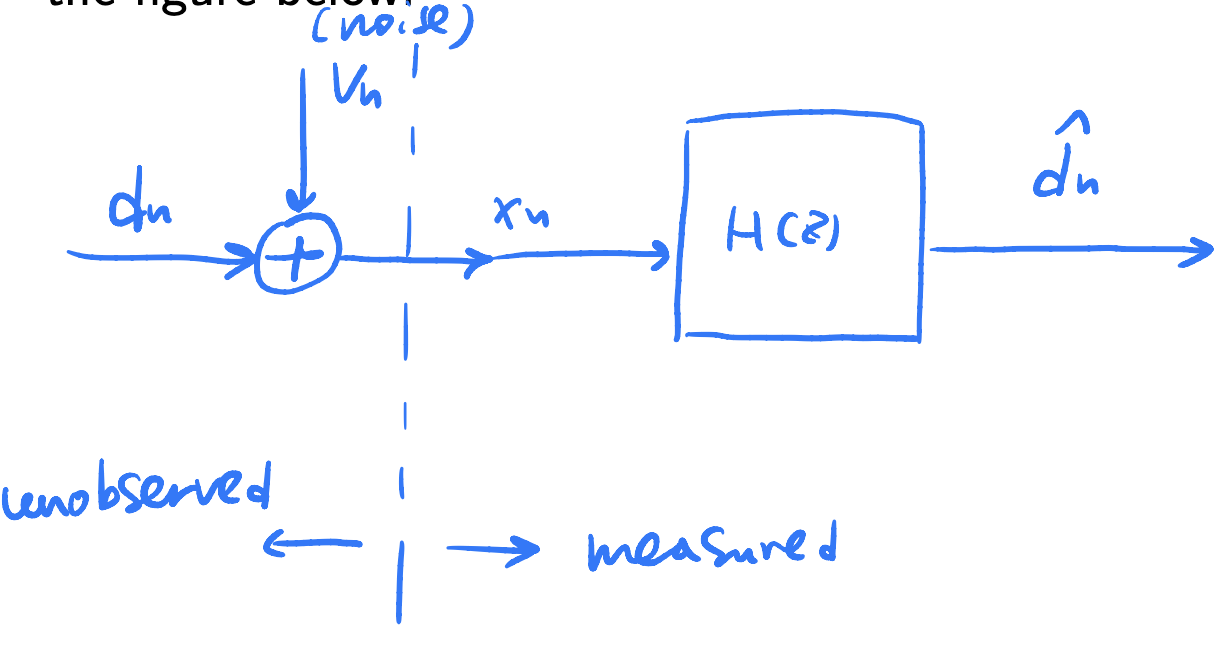 the figure below.
(noise)
Vn
dn
+
xn
H(z)
d̂n
unobserved
measured